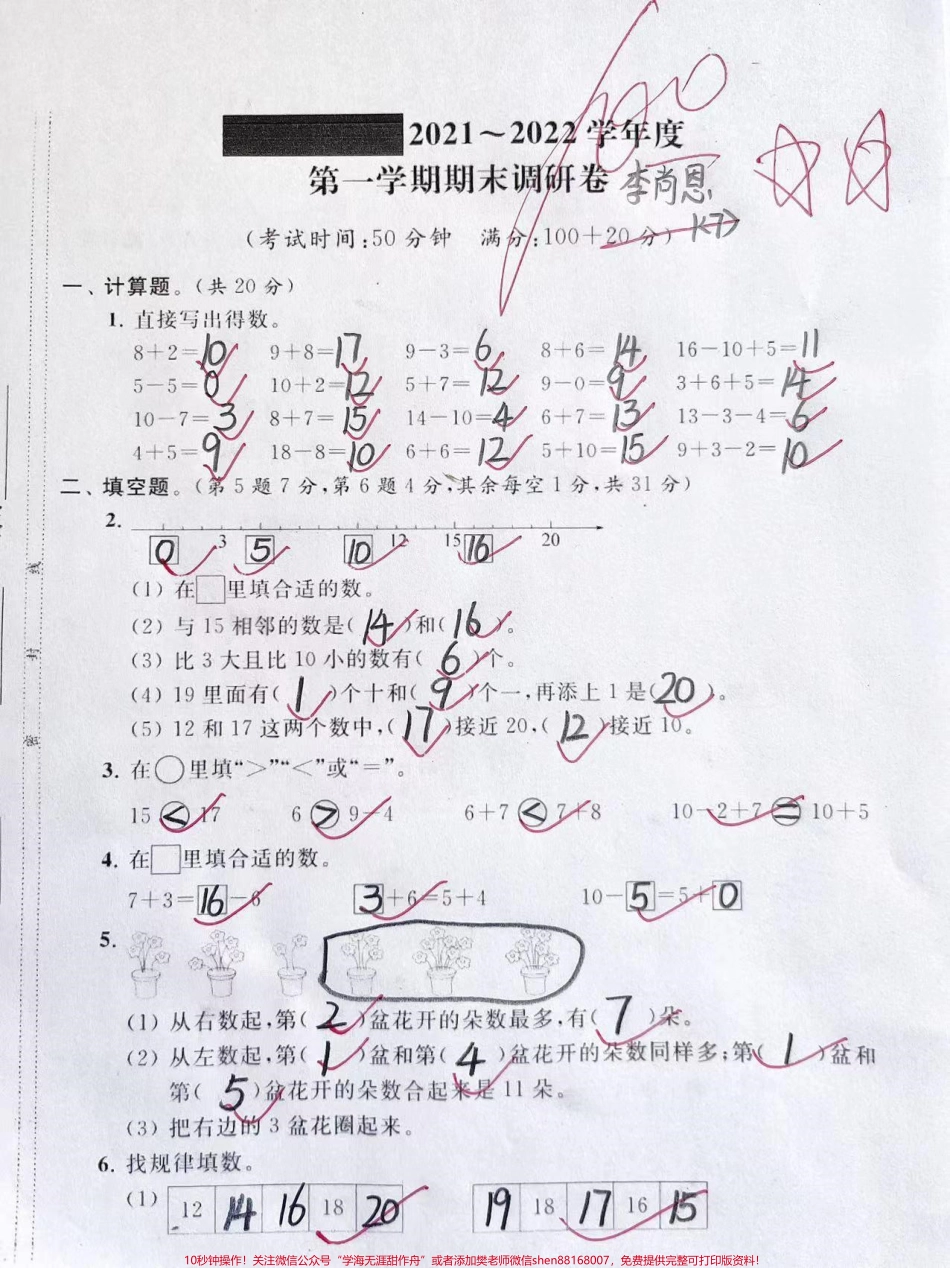 100
2021～2022 学年度
第一学期期末调研卷 李尚恩
(考试时间:50 分钟 满分:100+20 分) K7
一、计算题。(共 20 分)
1. 直接写出得数。
8+2=10 9+8=17 9-3=6 8+6=14 16-10+5=11
5-5=0 10+2=12 5+7=12 9-0=9 3+6+5=14
10-7=3 8+7=15 14-10=4 6+7=13 13-3-4=6
4+5=9 18-8=10 6+6=12 5+10=15 9+3-2=10
二、填空题。(第 5 题 7 分,第 6 题 4 分,其余每空 1 分,共 31 分)
2.
0 3 5 10 12 15 16 20
(1) 在□里填合适的数。
(2) 与 15 相邻的数是(14)和(16)。
(3) 比 3 大且比 10 小的数有(6)个。
(4) 19 里面有(1)个十和(9)个一,再添上 1 是(20)。
(5) 12 和 17 这两个数中,(17)接近 20,(12)接近 10。
3. 在○里填“>”“<”或“=”。
15 < 17 6 > 9-4 6+7 < 7+8 10-2+7 = 10+5
4. 在□里填合适的数。
7+3=16-6 3+6=5+4 10-5=5+0
5.
(1) 从右数起,第(2)盆花开的朵数最多,有(7)朵。
(2) 从左数起,第(1)盆和第(4)盆花开的朵数同样多;第(1)盆和
第(5)盆花开的朵数合起来是 11 朵。
(3) 把右边的 3 盆花圈起来。
6. 找规律填数。
(1) 12 14 16 18 20 19 18 17 16 15
线
封
密
10秒钟操作！关注微信公众号“学海无涯甜作舟”或者添加樊老师微信shen88168007，免费提供完整可打印版资料！